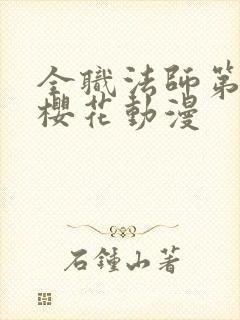 全職法師第
櫻花動漫
石鍾山著